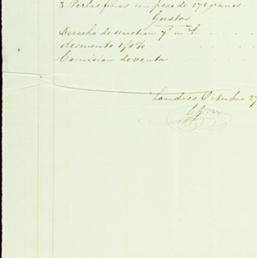 3 Perlas finas con peso de 171 granos
Gastos
Derecho de auction
descuento 1/0%
Comision de venta
Londres Octubre 27